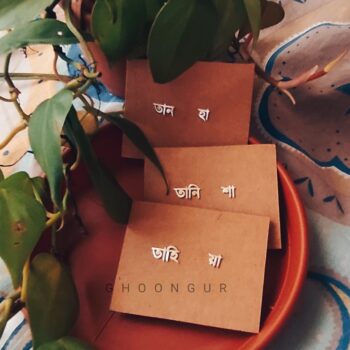 তান হা
তানি শা
তাহি য়া
GHOONGUR